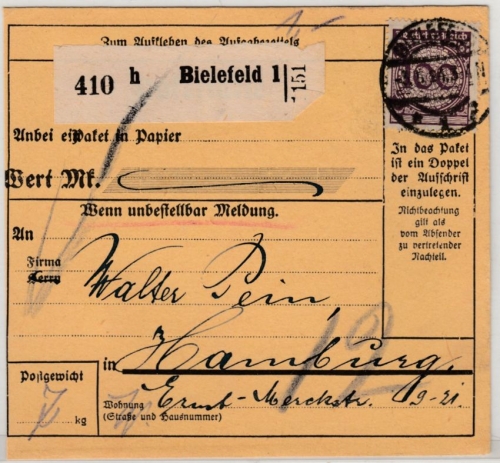 2-
Zum Aufkleben des Aufgabezettels
410 h Bielefeld 1
151
100
Anbei ein Paket in Papier
Wert Mk.
Wenn unbestellbar Meldung.
An
Firma
Herrn
Walter Pein,
in Hamburg.
12
Postgewicht
7 kg
Wohnung
(Straße und Hausnummer)
Ernst-Merckstr. 9-21.
In das Paket
ist ein Doppel
der Aufschrift
einzulegen.
Nichtbeachtung
gilt als
vom Absender
zu vertretender
Nachteil.